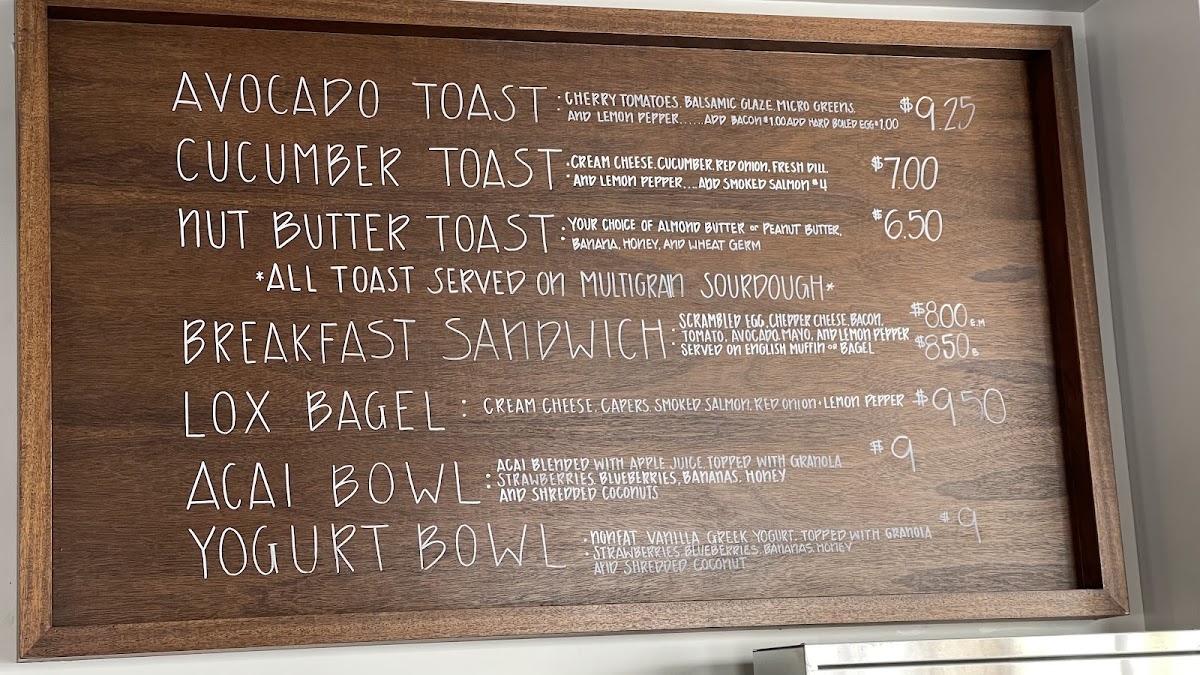 AVOCADO TOAST : CHERRY TOMATOES, BALSAMIC GLAZE, MICRO GREENS, $9.25
AND LEMON PEPPER......ADD BACON $1.00 ADD HARD BOILED EGG $1.00
CUCUMBER TOAST : CREAM CHEESE, CUCUMBER, RED ONION, FRESH DILL, $7.00
AND LEMON PEPPER....ADD SMOKED SALMON $4
NUT BUTTER TOAST : YOUR CHOICE OF ALMOND BUTTER or PEANUT BUTTER, $6.50
BANANA, HONEY, AND WHEAT GERM
*ALL TOAST SERVED ON MULTIGRAIN SOURDOUGH*
BREAKFAST SANDWICH : SCRAMBLED EGG, CHEDDER CHEESE, BACON, $8.00 E.M
TOMATO, AVOCADO, MAYO, AND LEMON PEPPER
SERVED ON ENGLISH MUFFIN OR BAGEL $8.50 B
LOX BAGEL : CREAM CHEESE, CAPERS, SMOKED SALMON, RED ONION + LEMON PEPPER $9.50
ACAI BOWL : ACAI BLENDED WITH APPLE JUICE, TOPPED WITH GRANOLA $9
STRAWBERRIES, BLUEBERRIES, BANANAS, HONEY
AND SHREDDED COCONUTS
YOGURT BOWL : NONFAT VANILLA GREEK YOGURT, TOPPED WITH GRANOLA $9
STRAWBERRIES, BLUEBERRIES, BANANAS, HONEY
AND SHREDDED COCONUT